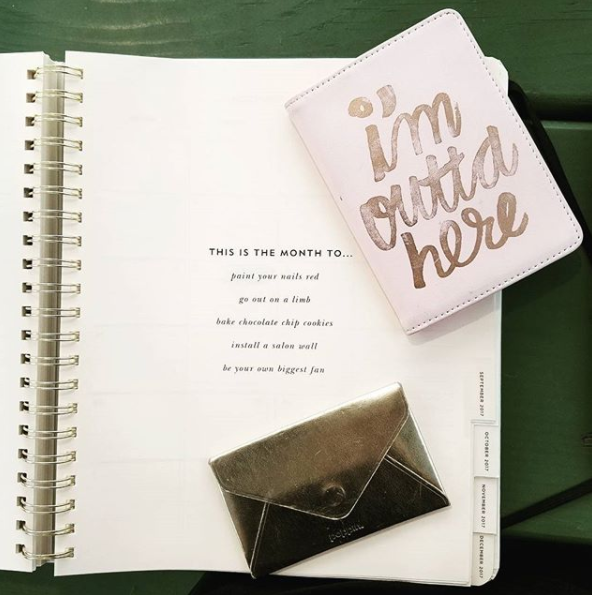 i'm
outta
here
THIS IS THE MONTH TO...
paint your nails red
go out on a limb
bake chocolate chip cookies
install a salon wall
be your own biggest fan
SEPTEMBER 2017
OCTOBER 2017
NOVEMBER 2017
DECEMBER 2017